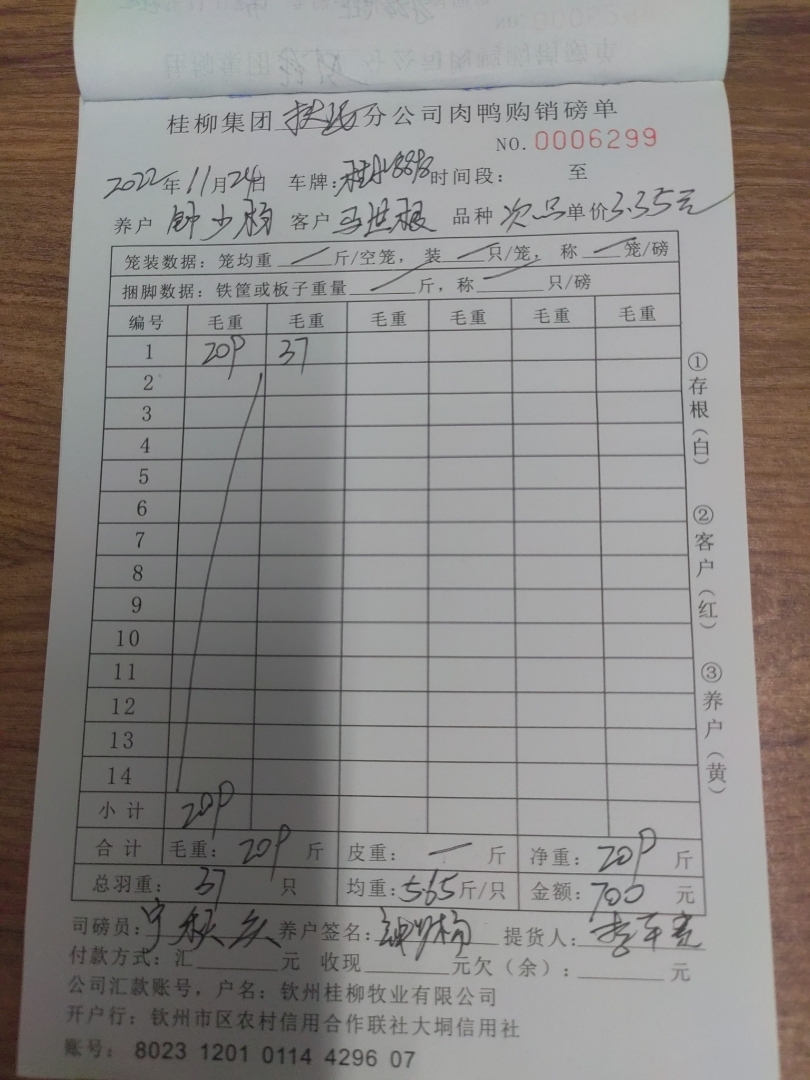 桂柳集团分公司肉鸭购销磅单
NO.0006299
2022年11月24日 车牌:桂 时间段: 至
养户 钟少杨 客户 马世根 品种 次品 单价3.35元
笼装数据:笼均重 — 斤/空笼, 装 — 只/笼, 称 — 笼/磅
捆脚数据:铁筐或板子重量 — 斤,称 — 只/磅
编号 毛重 毛重 毛重 毛重 毛重 毛重
1 209 37
2
3
4
5
6
7
8
9
10
11
12
13
14
小计 209
合计 毛重: 209 斤 皮重: — 斤 净重: 209 斤
总羽重: 37 只 均重:5.65斤/只 金额:700 元
司磅员: 养户签名:钟少杨 提货人:
付款方式:汇 元 收现 元欠(余): 元
公司汇款账号,户名:钦州桂柳牧业有限公司
开户行:钦州市区农村信用合作联社大垌信用社
账号: 8023 1201 0114 4296 07
①存根(白)
②客户(红)
③养户(黄)